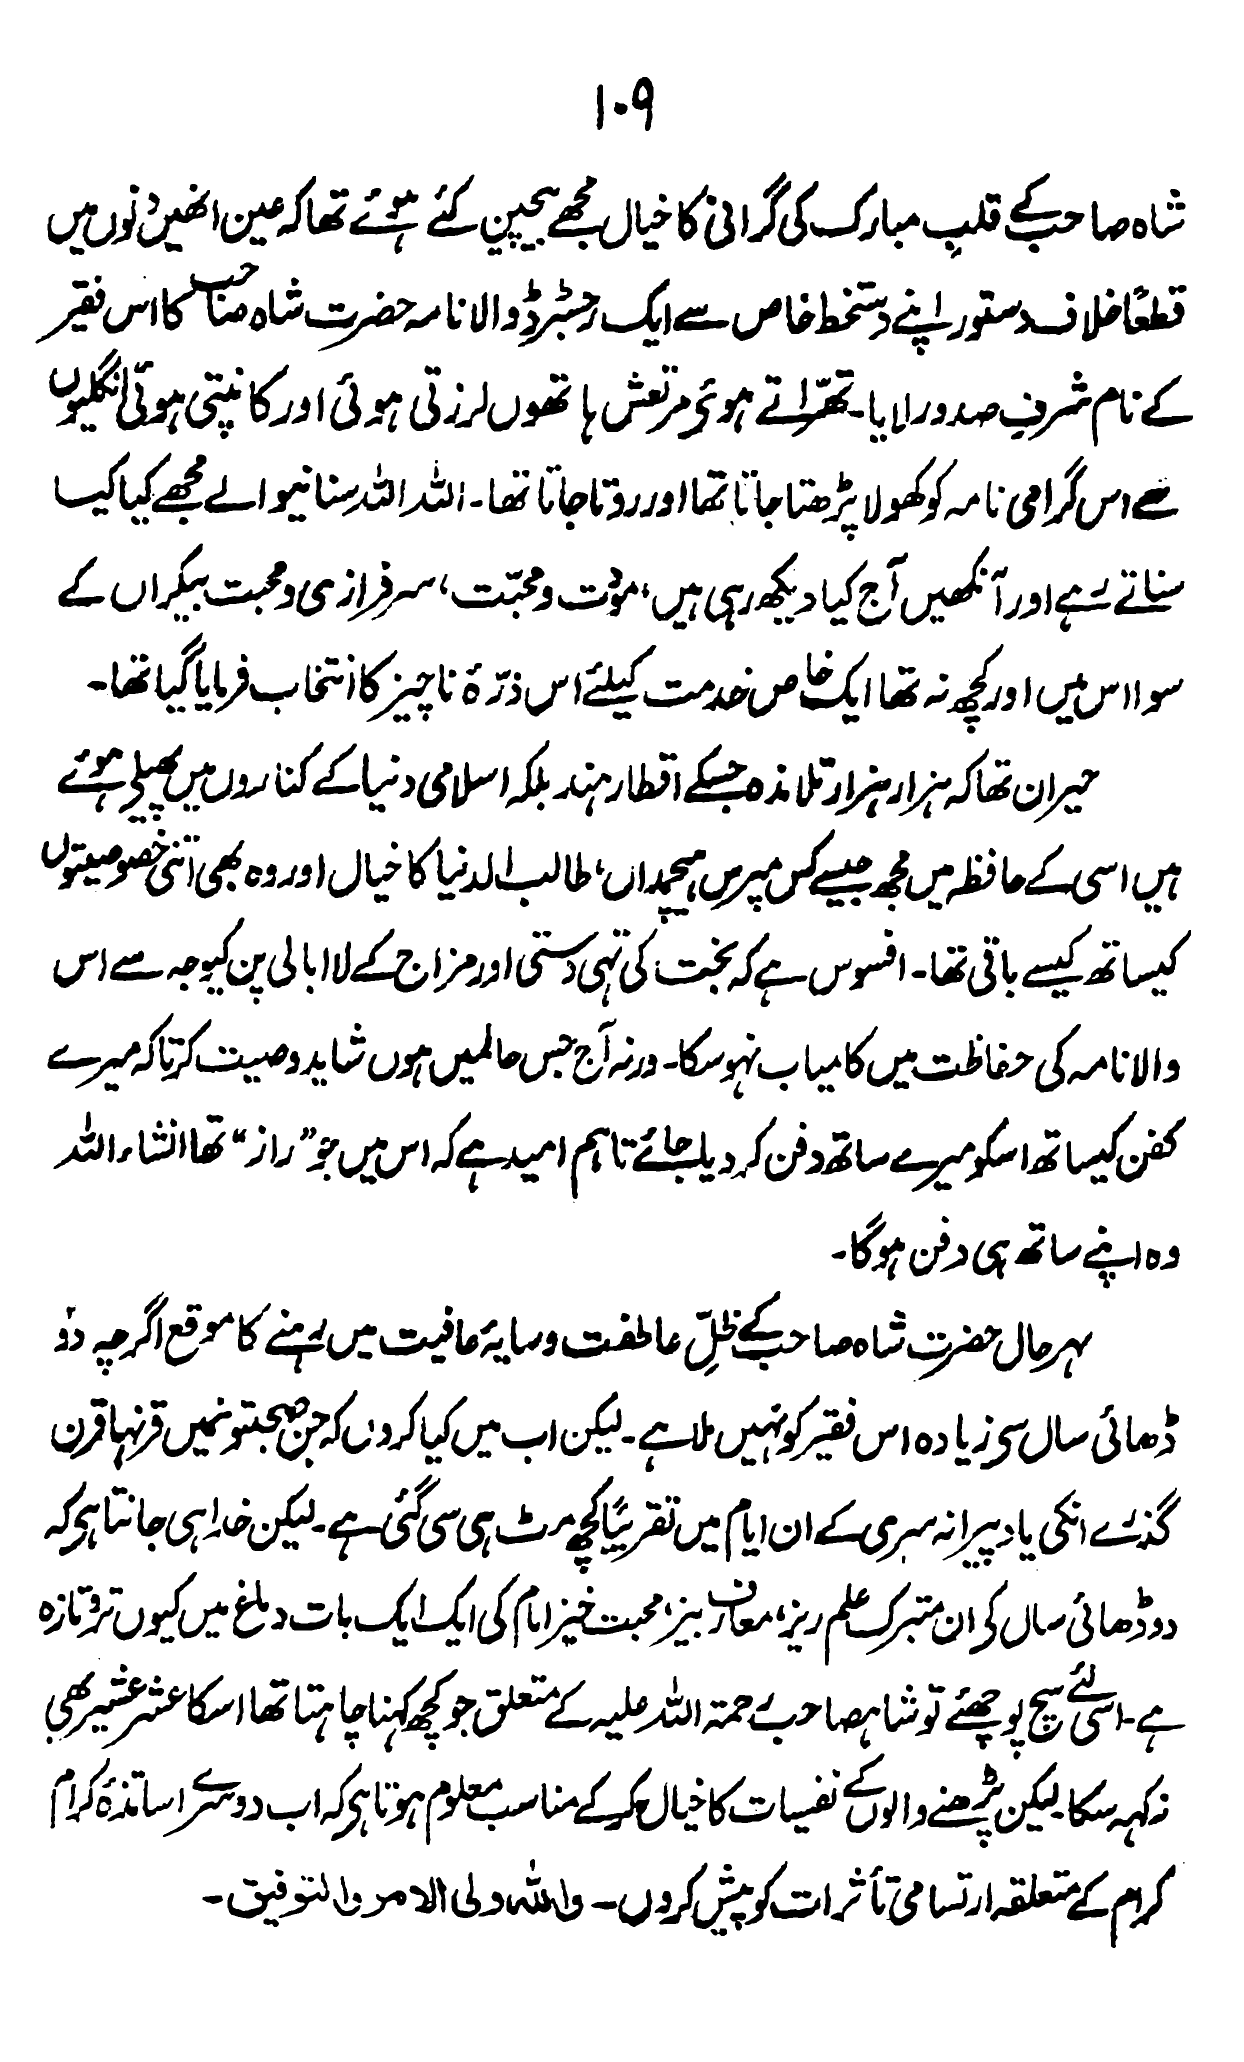 ۱۰۹
شاہ صاحب کے قلبِ مبارک کی گرانی کا خیال مجھے بیچین کئے ہوئے تھا کہ عین انھیں دنوں میں
قطعاً خلاف دستور اپنے دستخط خاص سے ایک رجسٹرڈ والا نامہ حضرت شاہ صاحب کا اس فقیر
کے نام شرفِ صدور لایا۔ تھرّاتے ہوئے مرتعش ہاتھوں لرزتی ہوئی اور کانپتی ہوئی انگلیوں
سے اس گرامی نامہ کو کھولا پڑھتا جاتا تھا اور روتا جاتا تھا۔ اللہ اللہ سنانیوالے مجھے کیا کیا
سناتے رہے اور آنکھیں آج کیا دیکھ رہی ہیں، مودّت و محبّت، سرفرازی و محبت بیکراں کے
سوا اس میں اور کچھ نہ تھا ایک خاص خدمت کیلئے اس ذرّۂ ناچیز کا انتخاب فرمایا گیا تھا۔
حیران تھا کہ ہزار ہزار تلامذہ جسکے اقطار ہند بلکہ اسلامی دنیا کے کناروں میں پھیلے ہوئے
ہیں اسی کے حافظہ میں مجھ جیسے کس مپرس ہیچمداں، طالب الدنیا کا خیال اور وہ بھی اتنی خصوصیتوں
کیساتھ کیسے باقی تھا۔ افسوس ہے کہ بخت کی تہی دستی اور مزاج کے لاابالی پن کیوجہ سے اس
والا نامہ کی حفاظت میں کامیاب نہوسکا۔ ورنہ آج جس حالمیں ہوں شاید وصیت کرتا کہ میرے
کفن کیساتھ اسکو میرے ساتھ دفن کر دیا جائے تاہم امید ہے کہ اس میں جو ”راز“ تھا انشاء اللہ
وہ اپنے ساتھ ہی دفن ہوگا۔
بہرحال حضرت شاہ صاحب کے ظلِّ عاطفت و سایۂ عافیت میں رہنے کا موقع اگرچہ دو
ڈھائی سال سی زیادہ اس فقیر کو نہیں ملا ہے۔ لیکن اب میں کیا کروں کہ جن صحبتونمیں قرنہا قرن
گذرے انکی یاد پیرانہ سری کے ان ایام میں تقریباً کچھ مٹ ہی سی گئی ہے۔ لیکن خدا ہی جانتا ہی کہ
دو ڈھائی سال کی ان متبرک علم ریز، معارف بیز، محبت خیز امام کی ایک ایک بات دماغ میں کیوں تروتازہ
ہے۔ اسی لئے سچ پوچھئے تو شاہصاحب رحمۃ اللہ علیہ کے متعلق جو کچھ کہنا چاہتا تھا اسکا عشر عشیر بھی
نہ کہہ سکا۔ لیکن پڑھنے والوں کے نفسیات کا خیال کرکے مناسب معلوم ہوتا ہی کہ اب دوسرے اساتذۂ کرام
کرام کے متعلقہ ارتسامی تأثرات کو پیش کروں۔ واللہ ولی الامر والتوفیق۔